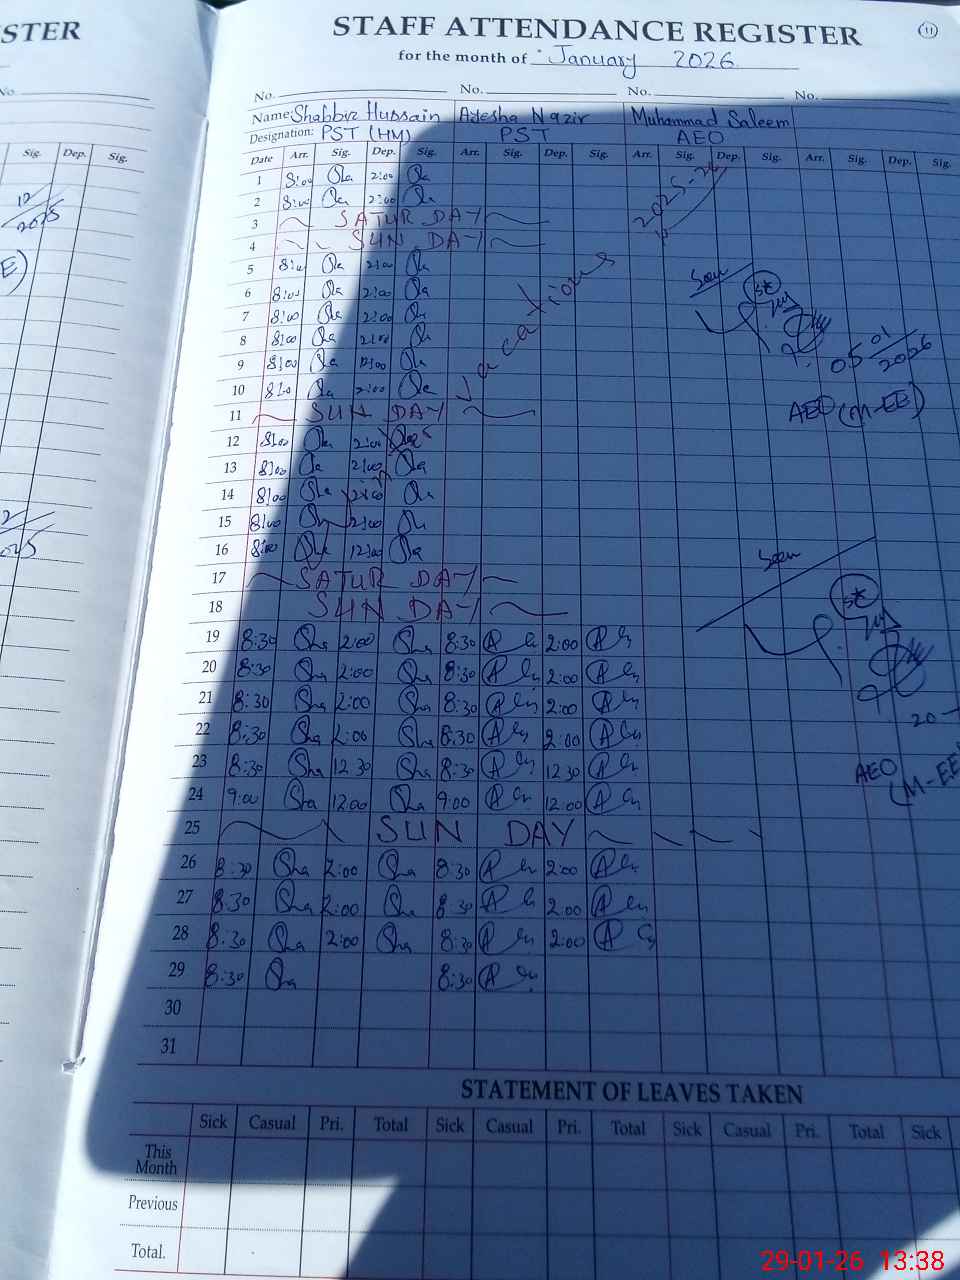 STER
STAFF ATTENDANCE REGISTER
11
for the month of January 2026.
No. No. No. No. No.
Name: Shabbir Hussain Adesha Nazir Muhammad Saleem
Designation: PST (HM) PST AEO
Sig. Dep. Sig.
Date Arr. Sig. Dep. Sig. Arr. Sig. Dep. Sig. Arr. Sig. Dep. Sig. Arr. Sig. Dep. Sig.
12
2025
E)
2025
1 8:00 2:00
2 8:00 2:00
3 SATUR DAY
4 SUN DAY
5 8:00 2:00
6 8:00 2:00
7 8:00 2:00
8 8:00 2:00
9 8:00 12:00
10 8:00 2:00
Vacations
Seen
05 01
2026
AEO (M-EE)
11 SUN DAY
12 8:00 2:00
13 8:00 2:00
14 8:00 2:00
15 8:00 2:00
16 8:00 12:00
17 SATUR DAY
18 SUN DAY
Seen
19 8:30 Sha 2:00 Sha 8:30 2:00
20 8:30 Sha 2:00 Sha 8:30 2:00
21 8:30 Sha 2:00 Sha 8:30 2:00
22 8:30 Sha 2:00 Sha 8:30 2:00
23 8:30 Sha 12:30 Sha 8:30 12:30
24 9:00 Sha 12:00 Sha 9:00 12:00
20
AEO
(M-EE
25 SUN DAY
26 8:30 Sha 2:00 Sha 8:30 2:00
27 8:30 Sha 2:00 Sha 8:30 2:00
28 8:30 Sha 2:00 Sha 8:30 2:00
29 8:30 Sha 8:30
30
31
STATEMENT OF LEAVES TAKEN
Sick Casual Pri. Total Sick Casual Pri. Total Sick Casual Pri. Total Sick
This Month
Previous
Total.
29-01-26 13:38